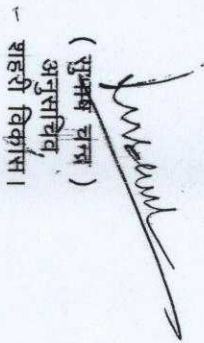 ( सुभाष चन्द्र )
अनुसचिव,
शहरी विकास।